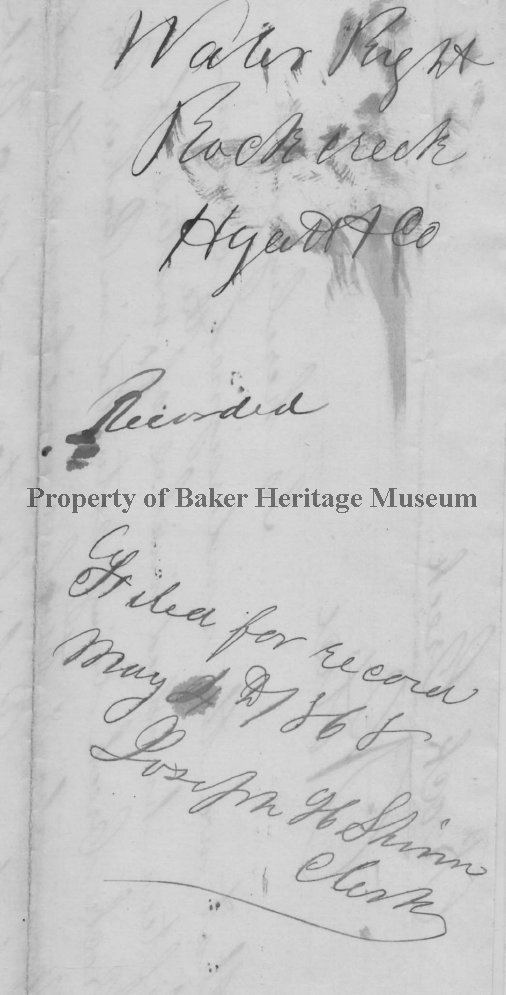 Water Right
Rock creek
Hyatt & Co
Recorded
Property of Baker Heritage Museum
Filed for record
May 4 D 1868
Joseph H Shinn
Clerk